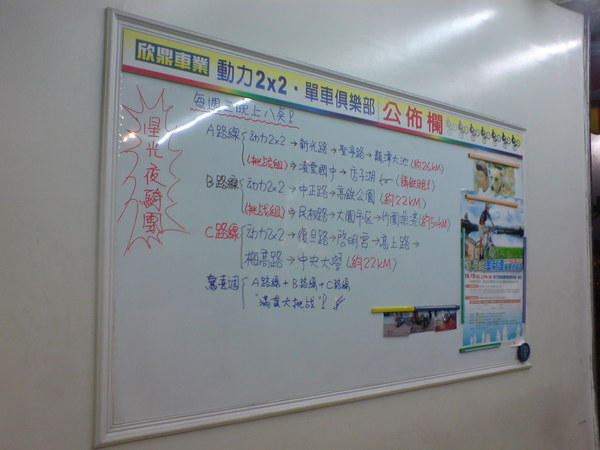 欣鼎車業 動力2x2・單車俱樂部 公佈欄
星光夜騎團
每週三晚上八點!
A路線 动力2x2→新光路→聖亭路→龍潭大池(約26KM)
(挑战組)→凌雲國中→店子湖
B路線 动力2x2→中正路→高鉄公園(約22KM)
(挑战組)→民权路→大園市区→竹圍漁港(約50KM)
C路線 动力2x2→復旦路→啓明宮→高上路→
梅高路→中央大學(約22KM)
驚喜週 A路線+B路線+C路線
"滿貫大挑战"!